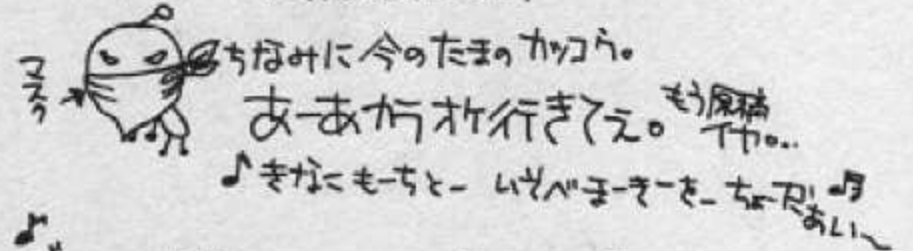 マスク
ちなみに今のたまのカッコウ。
あーあカラオケ行きてえ。もう原稿イヤ。。。
♪きなこもーちとー いそべまーきーをー ちょーだぁい〜♪
♪